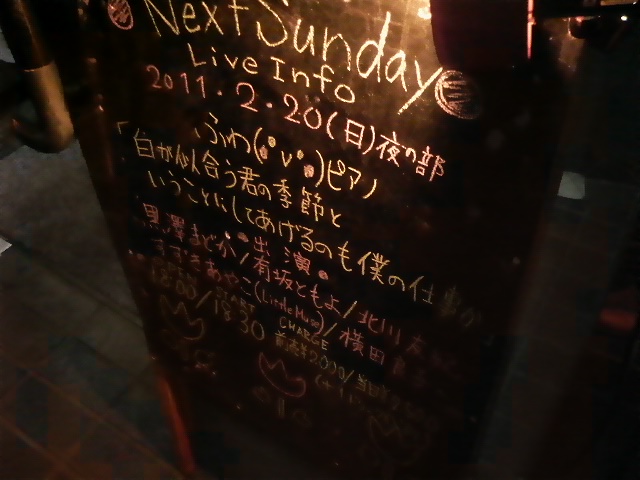 Next Sunday
Live Info
2011・2・20(日)夜の部
ふわ(・v・)ピアノ
「白が似合う君の季節と
いうことにしてあげるのも僕の仕事か
・出演・
黒澤まどか/有坂ともよ/北川
すずきあやこ(Little Muse)/横田
OPEN START CHARGE
18:00/18:30 前売¥2000/当日